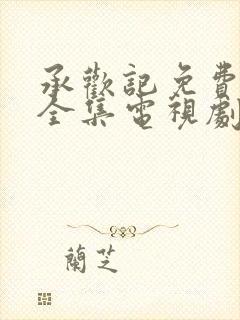 承歡記免費
全集電視劇
蘭芝